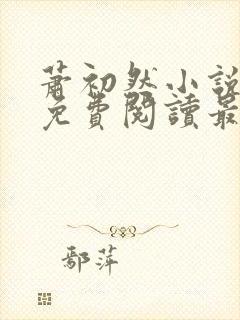 蕭初然小說
免費閱讀最
鄢萍